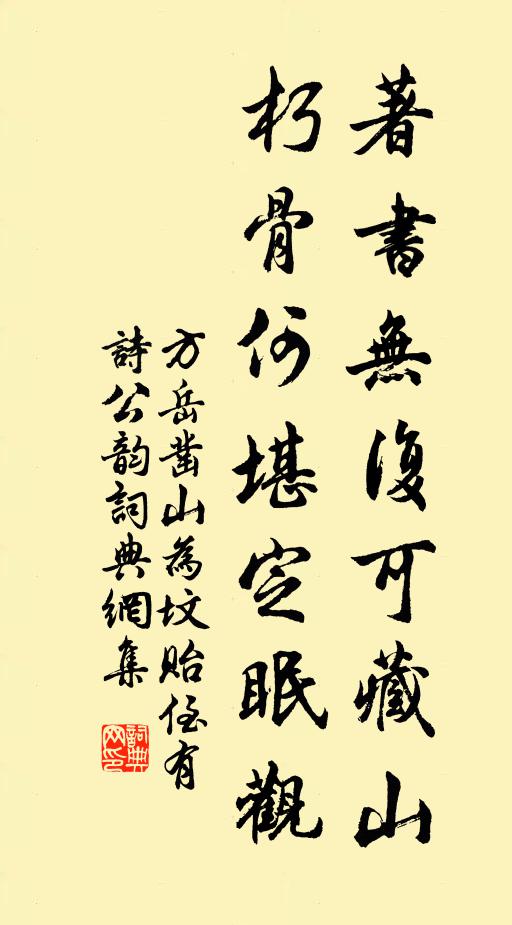 著書無復可藏山
朽骨何堪定眠觀
方岳凿山為坟贻侄有
詩公韵詞典網集
詞典網印